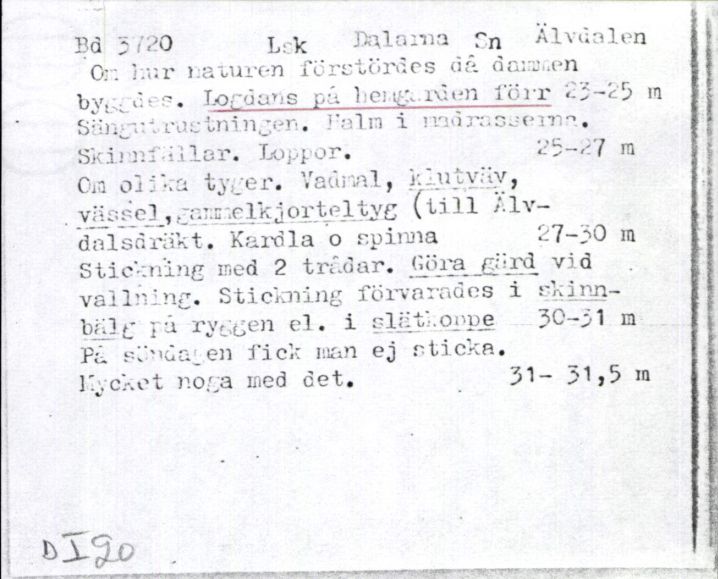 Bd 3720 Lsk Dalarna Sn Älvdalen
Om hur naturen förstördes då dammen
byggdes. Logdans på hemgården förr 23-25 m
Sängutrustningen. Halm i madrasserna.
Skinnfällar. Loppor. 25-27 m
Om olika tyger. Vadmal, klutväv,
vässel, gammelkjorteltyg (till Älv-
dalsdräkt. Kardla o spinna 27-30 m
Stickning med 2 trådar. Göra gärd vid
vallning. Stickning förvarades i skinn-
bälg på ryggen el. i slätkoppe 30-31 m
På söndagen fick man ej sticka.
Mycket noga med det. 31- 31,5 m
D I 90